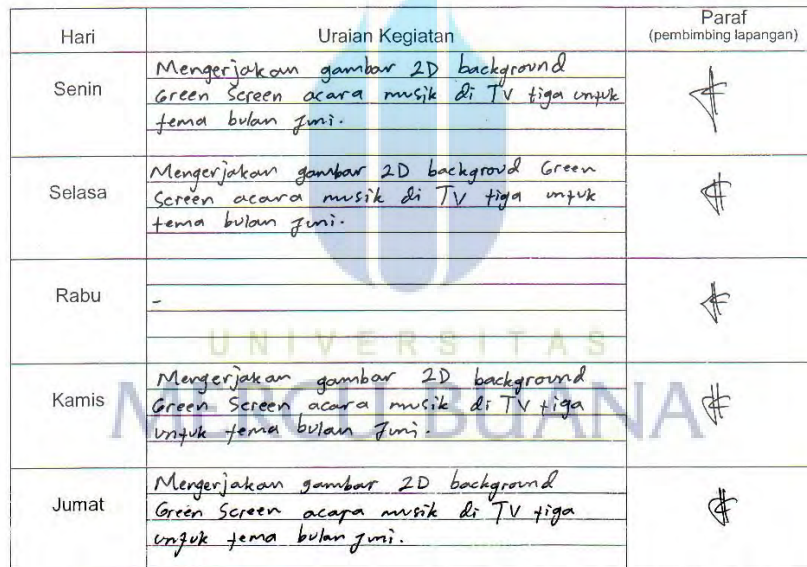 Hari Uraian Kegiatan Paraf
(pembimbing lapangan)
Senin
Mengerjakan gambar 2D background
Green Screen acara musik di TV tiga untuk
tema bulan Juni.
Selasa
Mengerjakan gambar 2D backgroud Green
Screen acara musik di TV tiga untuk
tema bulan Juni.
Rabu
-
UNIVERSITAS
MERCU BUANA
Kamis
Mengerjakan gambar 2D background
Green Screen acara musik di TV tiga
untuk tema bulan Juni.
Jumat
Mengerjakan gambar 2D background
Green Screen acara musik di TV tiga
untuk tema bulan Juni.